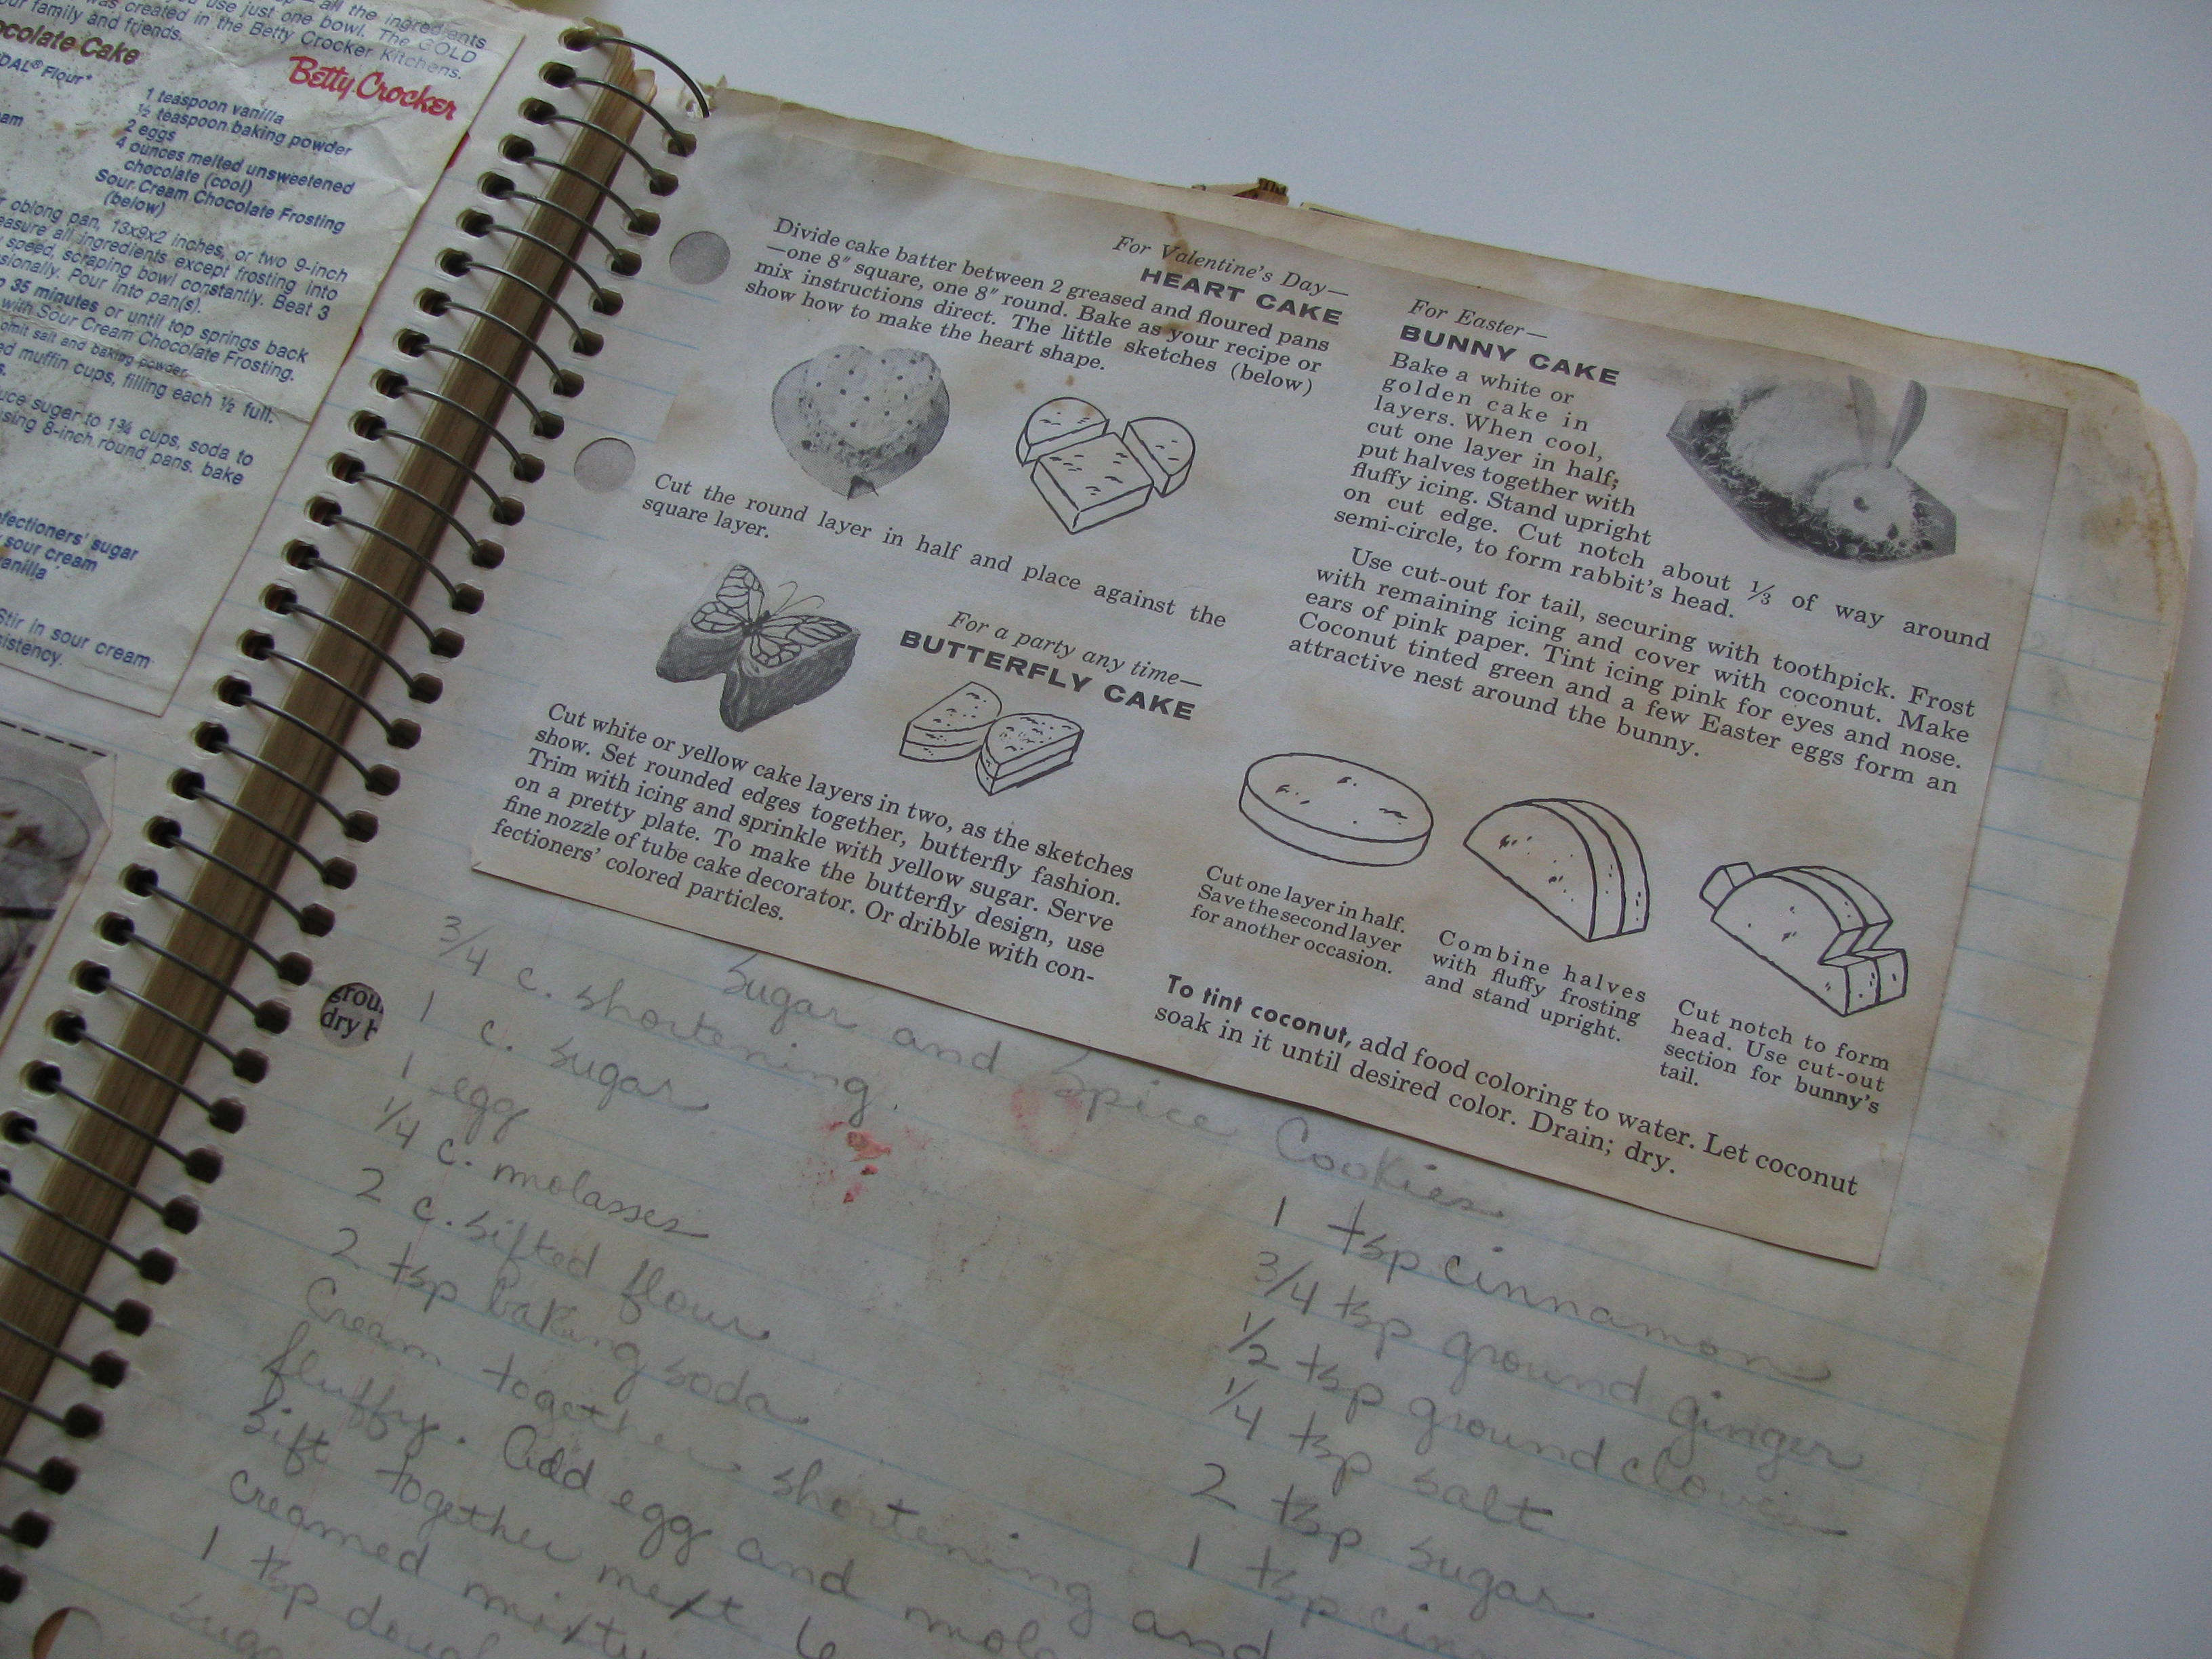 all the ingredients
use just one bowl. The GOLD
was created in the Betty Crocker Kitchens.
our family and friends.
ocolate Cake
Betty Crocker
DAL® Flour*
1 teaspoon vanilla
½ teaspoon baking powder
2 eggs
4 ounces melted unsweetened
chocolate (cool)
Sour Cream Chocolate Frosting
(below)
r oblong pan, 13x9x2 inches, or two 9-inch
easure all ingredients except frosting into
speed, scraping bowl constantly. Beat 3
sionally. Pour into pan(s).
35 minutes or until top springs back
with Sour Cream Chocolate Frosting.
omit salt and baking powder.
ed muffin cups, filling each ½ full.
uce sugar to 1¾ cups, soda to
sing 8-inch round pans, bake
nfectioners' sugar
sour cream
vanilla
Stir in sour cream
sistency.
For Valentine's Day—
HEART CAKE
Divide cake batter between 2 greased and floured pans
—one 8" square, one 8" round. Bake as your recipe or
mix instructions direct. The little sketches (below)
show how to make the heart shape.
Cut the round layer in half and place against the
square layer.
For a party any time—
BUTTERFLY CAKE
Cut white or yellow cake layers in two, as the sketches
show. Set rounded edges together, butterfly fashion.
Trim with icing and sprinkle with yellow sugar. Serve
on a pretty plate. To make the butterfly design, use
fine nozzle of tube cake decorator. Or dribble with con-
fectioners' colored particles.
For Easter—
BUNNY CAKE
Bake a white or
golden cake in
layers. When cool,
cut one layer in half;
put halves together with
fluffy icing. Stand upright
on cut edge. Cut notch about ⅓ of way around
semi-circle, to form rabbit's head.
Use cut-out for tail, securing with toothpick. Frost
with remaining icing and cover with coconut. Make
ears of pink paper. Tint icing pink for eyes and nose.
Coconut tinted green and a few Easter eggs form an
attractive nest around the bunny.
Cut one layer in half.
Save the second layer
for another occasion.
Combine halves
with fluffy frosting
and stand upright.
Cut notch to form
head. Use cut-out
section for bunny's
tail.
To tint coconut, add food coloring to water. Let coconut
soak in it until desired color. Drain; dry.
grou
dry
Sugar and Spice Cookies
3/4 c. shortening
1 c. sugar
1 egg
1/4 c. molasses
2 c. sifted flour
2 tsp baking soda
1 tsp cinnamon
3/4 tsp ground ginger
1/2 tsp ground cloves
1/4 tsp salt
2 tsp sugar
1 tsp cinn
Cream together shortening and
fluffy. Add egg and mola
Sift together next 6
creamed mixtu
1 tsp dough
suga